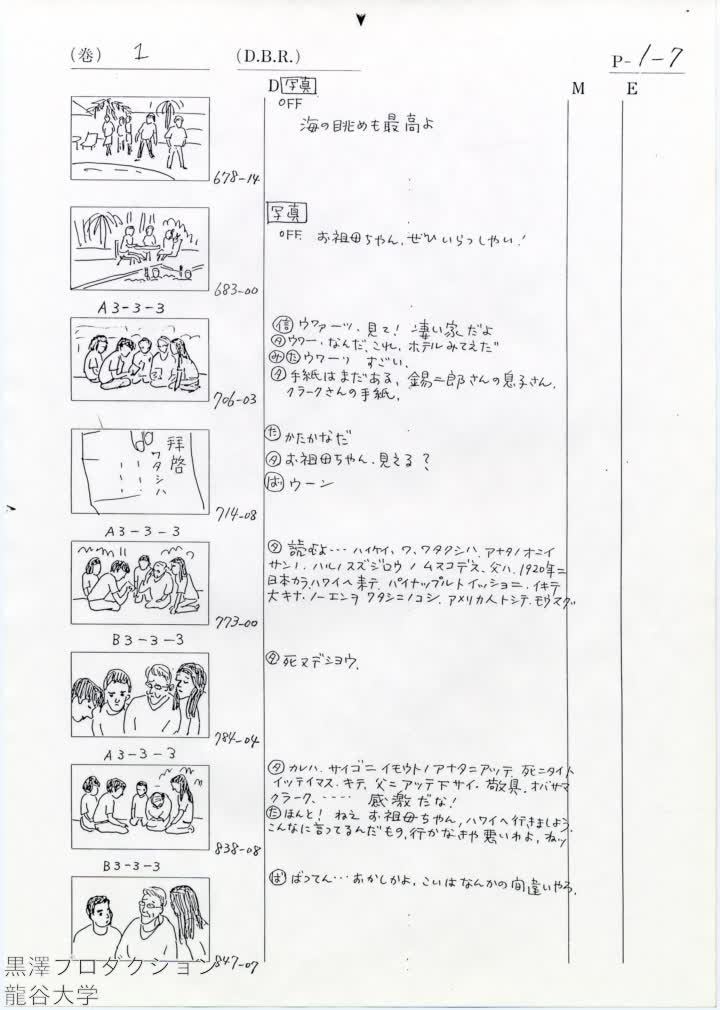 (巻) 1 (D.B.R.) P-1-7
D 写真 M E
OFF
海の眺めも最高よ
678-14
写真
OFF. お祖母ちゃん、ぜひいらっしゃい!
683-00
A3-3-3
信 ウワァーッ、見て! 凄い家だよ
タ ウワー、なんだ、これ、ホテルみてえだ
みた ウワーッ すごい.
タ 手紙はまだある、錫二郎さんの息子さん、
クラークさんの手紙.
706-03
拝啓
ワタシハ
た かたかなだ
タ お祖母ちゃん、見える?
ば ウーン
714-08
A3-3-3
タ 読むよ… ハイケイ、ワ、ワタクシハ、アナタノオニイ
サンノ、ハルノスズジロウノムスコデス、父ハ、1920年ニ
日本カラハワイヘ来テ、パイナップルトイッショニ、イキテ
大キナ、ノーエンヲワタシニノコシ、アメリカ人トシテ、モウスグ
773-00
B3-3-3
タ 死ヌデショウ.
784-04
A3-3-3
タ カレハ、サイゴニイモウトノアナタニアッテ、死ニタイト
イッテイマス、キテ、父ニアッテ下サイ、敬具、オバサマ
クラーク、…… 感激だな!
た ほんと! ねえ お祖母ちゃん、ハワイへ行きましょう、
こんなに言ってるんだもの、行かなきゃ悪いわよ、ねッ
838-08
B3-3-3
ば ばってん… おかしかよ、こいはなんかの間違いやろ、
847-07
黒澤プロダクション
龍谷大学